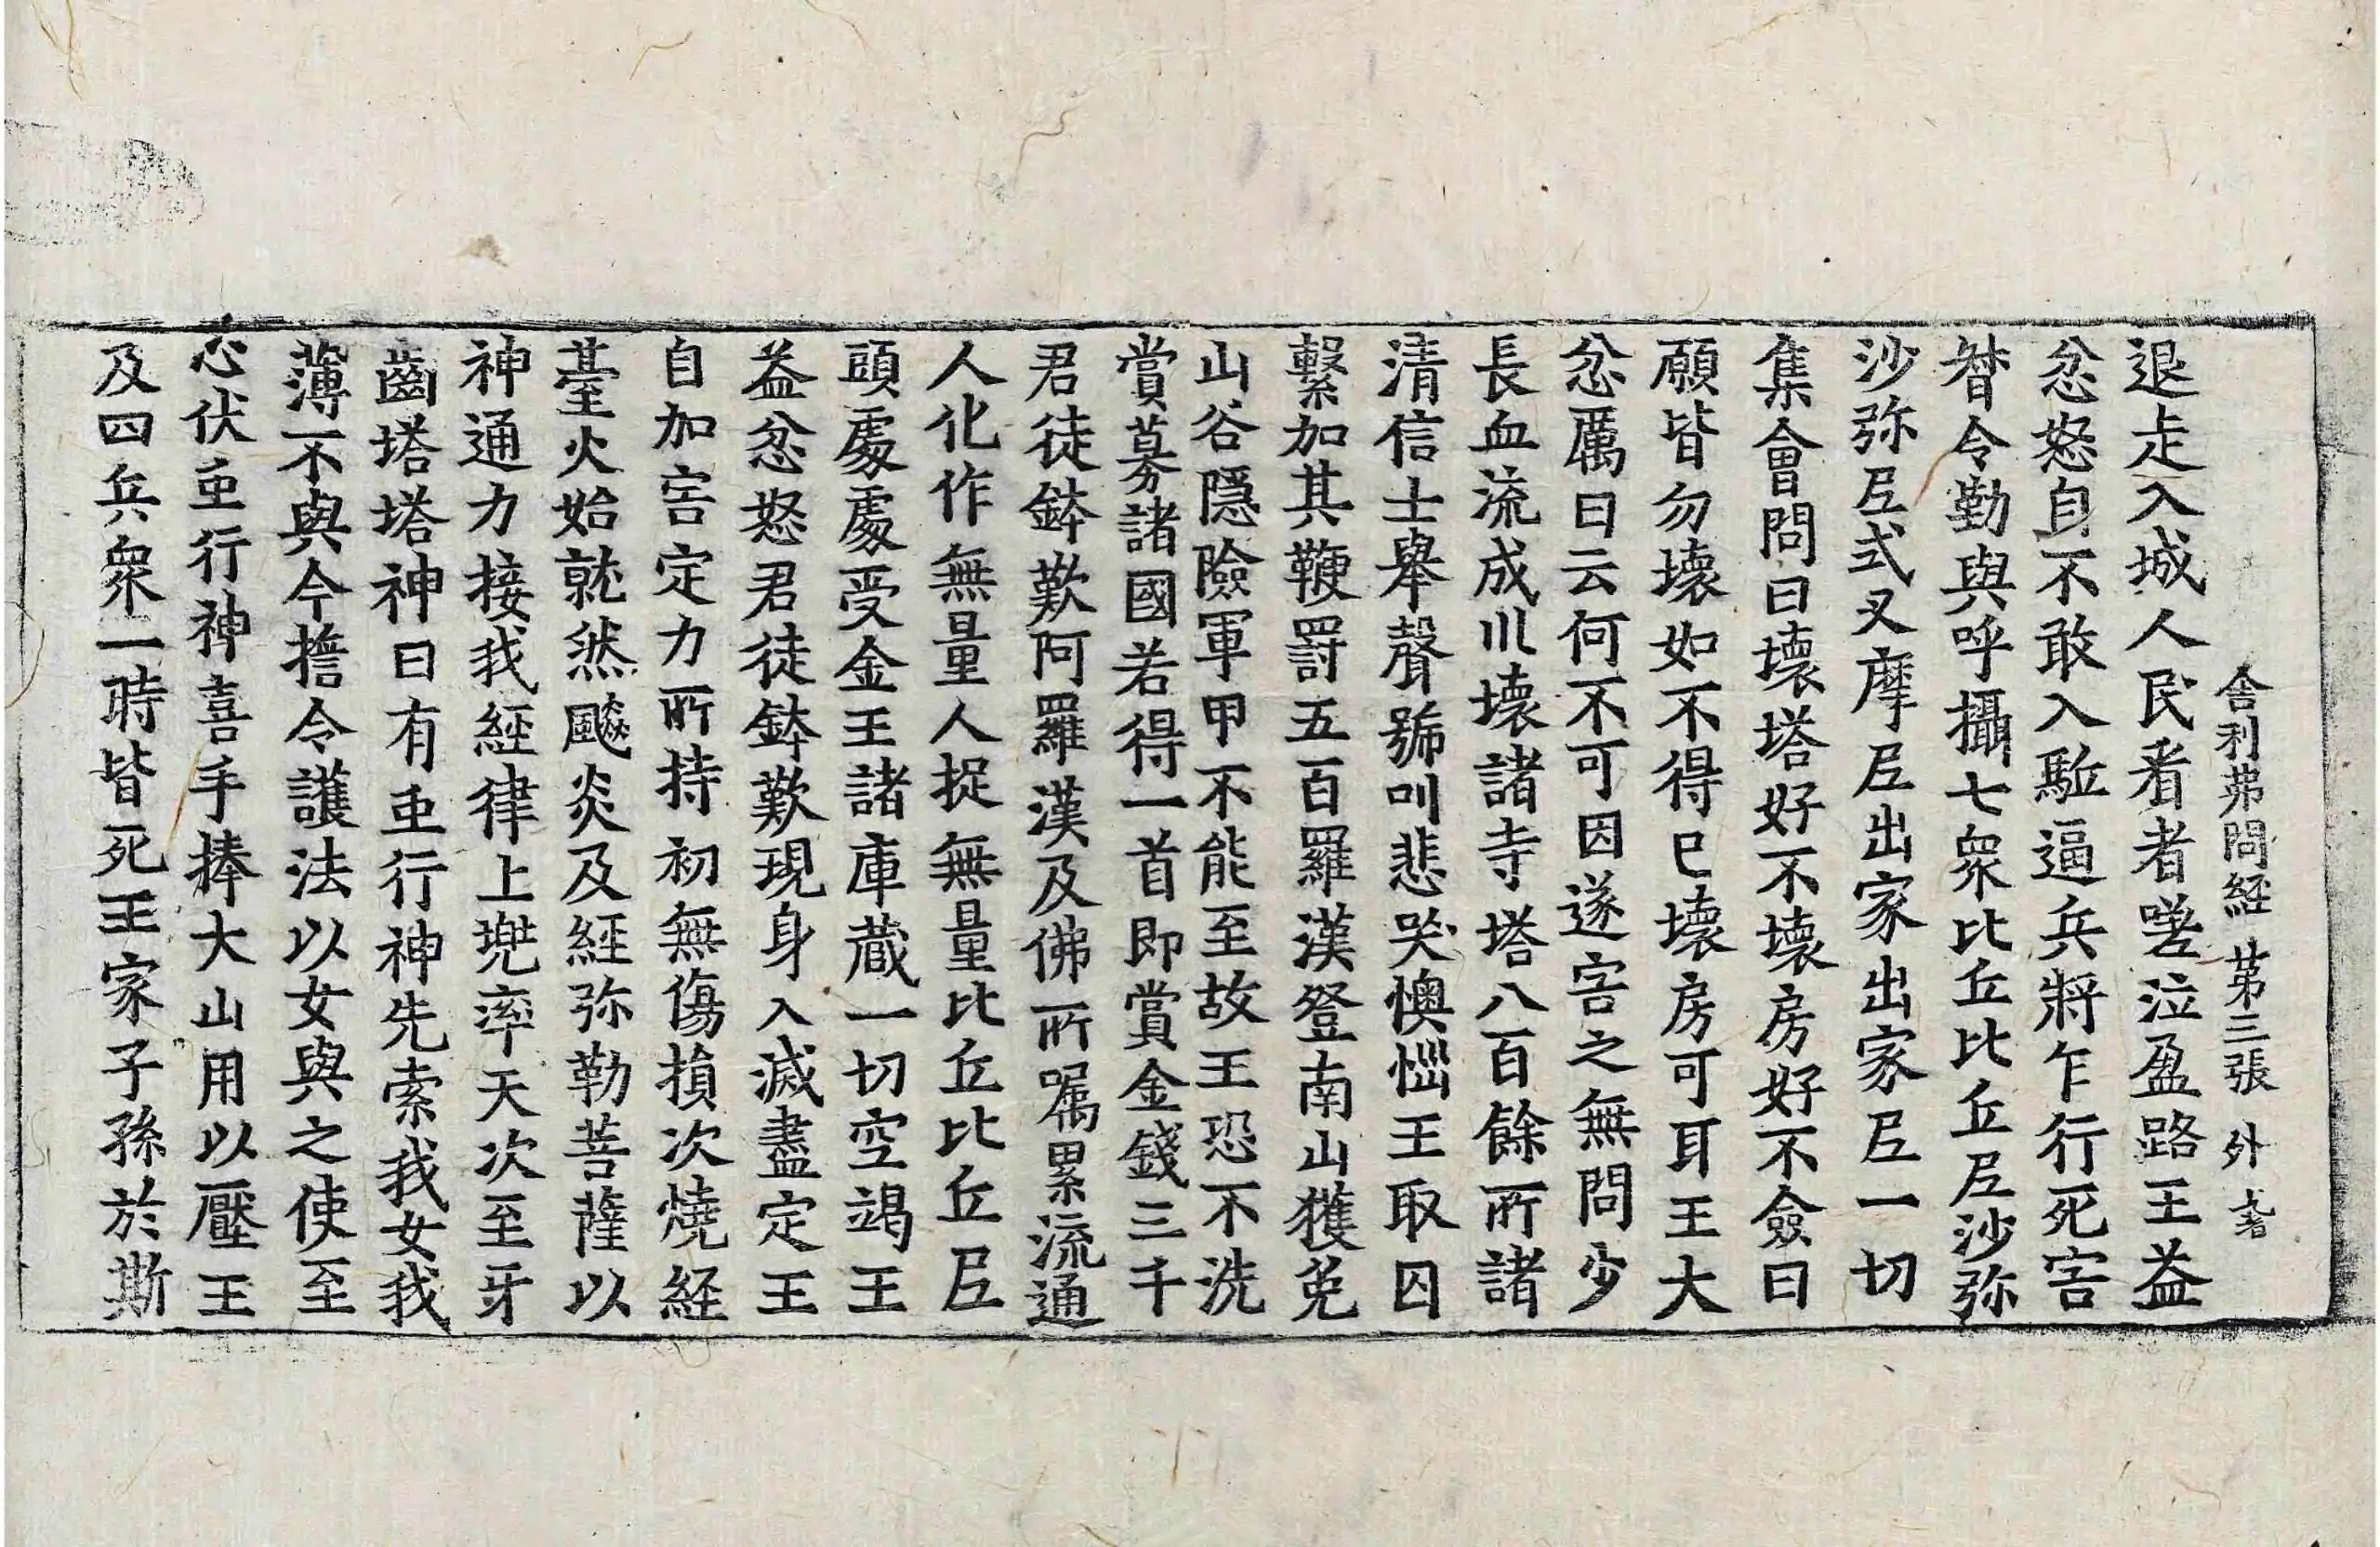 舍利弗問經 第三張 外
退走入城人民看者嗟泣盈路王益
忿怒自不敢入駈逼兵將乍行死害
督令勤與呼攝七衆比丘比丘尼沙弥
沙弥尼式叉摩尼出家出家尼一切
集會問曰壞塔好不壞房好不僉曰
願皆勿壞如不得已壞房可耳王大
忿厲曰云何不可因遂害之無問少
長血流成川壞諸寺塔八百餘所諸
清信士舉聲號叫悲哭懊惱王取囚
繫加其鞭罰五百羅漢登南山獲免
山谷隱險軍甲不能至故王恐不洗
賞募諸國若得一首即賞金錢三千
君徒鉢歎阿羅漢及佛所囑累流通
人化作無量人捉無量比丘比丘尼
頭處處受金王諸庫藏一切空竭王
益忿怒君徒鉢歎現身入滅盡定王
自加害定力所持初無傷損次燒經
臺火始就然飈炎及經弥勒菩薩以
神通力接我經律上兜率天次至牙
齒塔塔神曰有虫行神先索我女我
薄不與今擔令護法以女與之使至
心伏虫行神喜手捧大山用以壓王
及四兵衆一時皆死王家子孫於斯